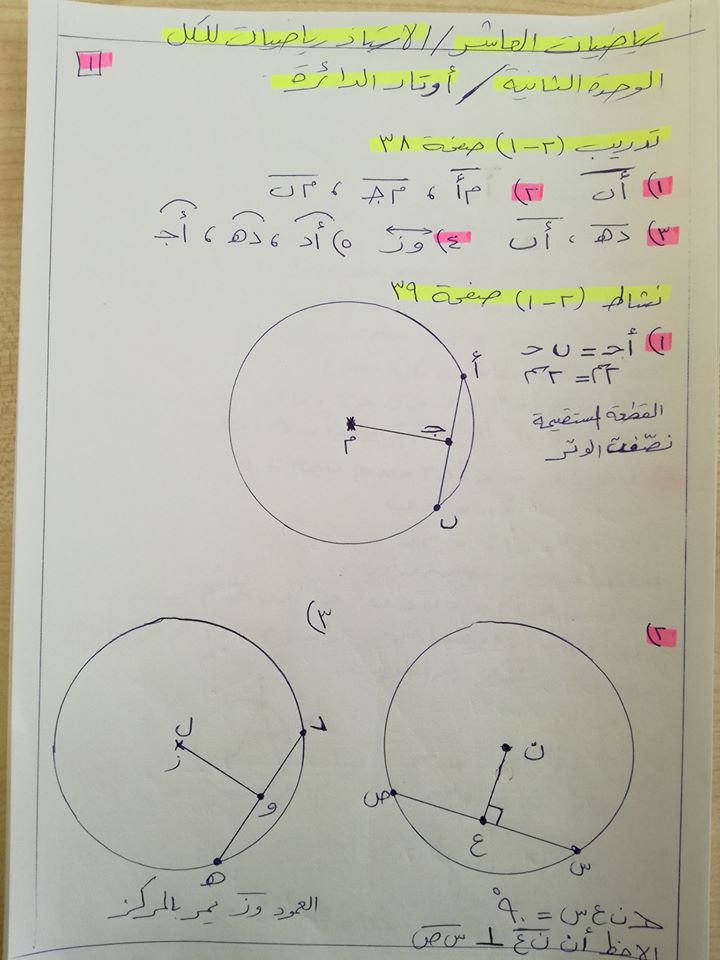 رياضيات العاشر / الاستاذ رياضيات للكل
١
الوحدة الثانية / أوتار الدائرة
تدريب (٢-١) صفحة ٣٨
١) أب ٢) مأ ، مجـ ، مب
٣) دهـ ، أب ٤) وز ٥) أد ، دهـ ، أجـ
نشاط (٢-١) صفحة ٣٩
١) أجـ = ب جـ
٢سم = ٢سم
القطعة المستقيمة
نصّفت الوتر
أ
جـ
م
ب
٢)
٣)
ن
ص
ع
س
د
ل
ز
و
هـ
∠ن ع س = ٩٠°
لاحظ أن ن ع ⊥ س ص
العمود وز يمر بالمركز